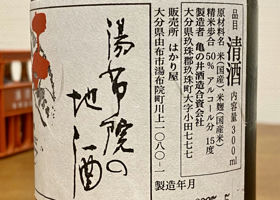 品目 清酒 内容量300ml
原材料名 米(国産)、米麹(国産米)
精米歩合 50% アルコール分 15度
製造者 亀の井酒造合資会社
大分県玖珠郡玖珠町大字小田七七七
販売所 はかり屋
大分県由布市湯布院町川上一〇八〇-一
湯布院の
地酒
製造年月